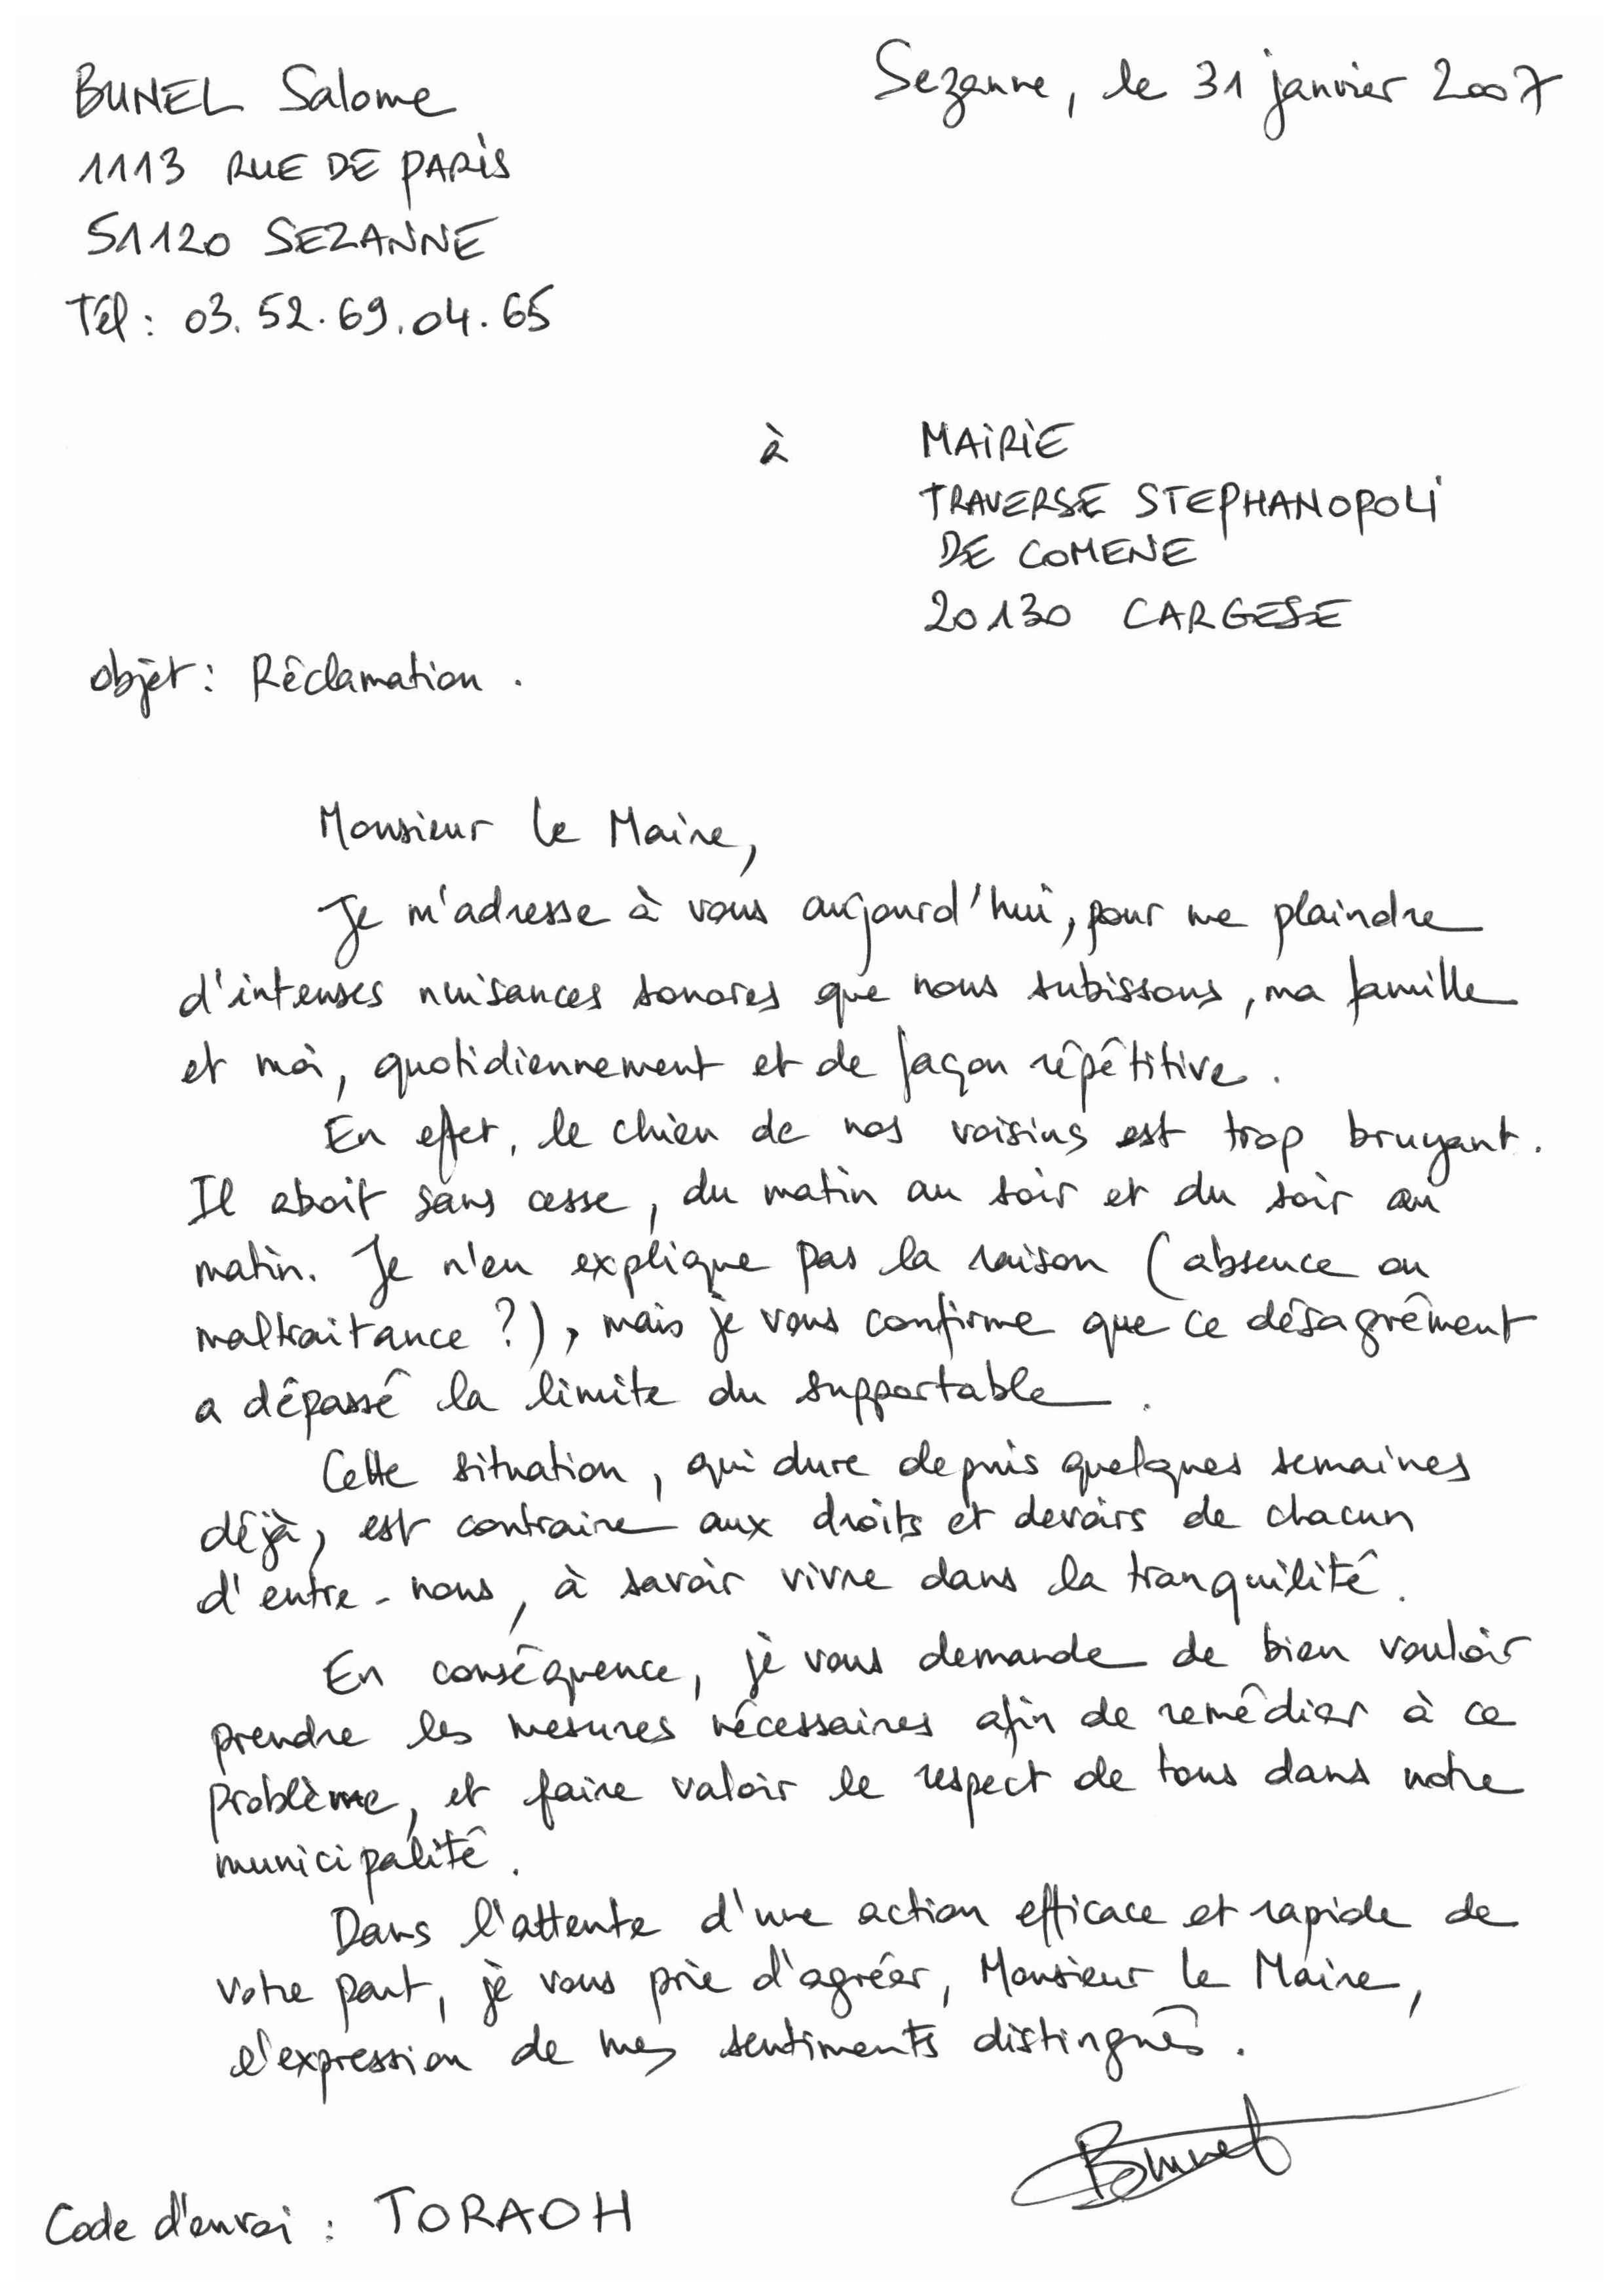 BUNEL Salome
Sezanne, le 31 janvier 2007
1113 RUE DE PARIS
51120 SEZANNE
Tél : 03.52.69.04.65
à MAIRIE
TRAVERSE STEPHANOPOLI
DE COMENE
20130 CARGESE
objet : Réclamation.
Monsieur le Maire,
Je m'adresse à vous aujourd'hui, pour me plaindre
d'intenses nuisances sonores que nous subissons, ma famille
et moi, quotidiennement et de façon répétitive.
En effet, le chien de nos voisins est trop bruyant.
Il aboit sans cesse, du matin au soir et du soir au
matin. Je n'en explique pas la raison (absence ou
maltraitance ?), mais je vous confirme que ce désagrément
a dépassé la limite du supportable.
Cette situation, qui dure depuis quelques semaines
déjà, est contraire aux droits et devoirs de chacun
d'entre-nous, à savoir vivre dans la tranquilité.
En conséquence, je vous demande de bien vouloir
prendre les mesures nécessaires afin de remédier à ce
problème, et faire valoir le respect de tous dans notre
municipalité.
Dans l'attente d'une action efficace et rapide de
votre part, je vous prie d'agréer, Monsieur le Maire,
l'expression de mes sentiments distingués.
Bunel
Code d'envoi : TORAOH